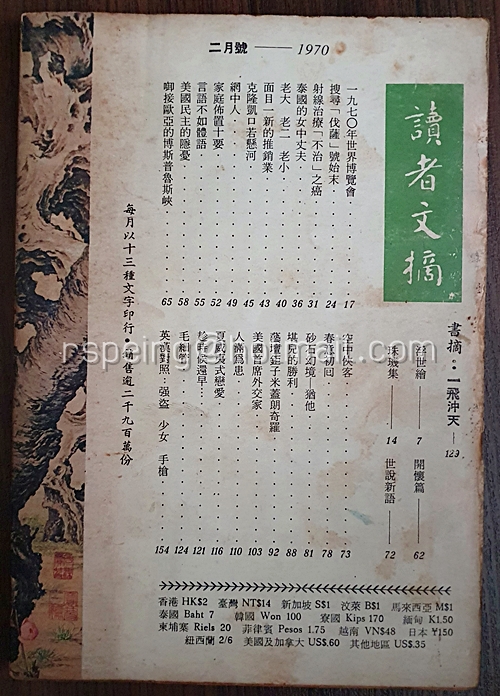 二月號 —— 1970
讀者文摘
書摘：一飛沖天— 129
浮世繪 7
開懷篇 62
珠璣集 14
世說新語 72
一九七〇年世界博覽會 17
搜尋「伐薩」號始末 24
射線治療「不治」之癌 31
泰國的女中丈夫 36
老大 老二 老小 40
面目一新的推銷業 43
克隆凱口若懸河 45
網中人 49
家庭佈置十要 52
言語不如體語 55
美國民主的隱憂 58
啣接歐亞的博斯普魯斯峽 65
空中俠客 73
春江初回 78
砂石幻境—猶他 81
堪兒的勝利 88
藝壇
米蓋朗奇羅 92
美國首席外交家 103
人滿為患 110
夏威夷式戀愛 116
趁時候還早 121
毛 124
英漢對照：强盜 少女 手槍 154
每月以十三種文字印行 銷售逾二千九百萬份
香港 HK$2 臺灣 NT$14 新加坡 S$1 汶萊 B$1 馬來西亞 M$1
泰國 Baht 7 韓國 Won 100 寮國 Kips 170 緬甸 K1.50
柬埔寨 Riels 20 菲律賓 Pesos 1.75 越南 VN$48 日本 ¥150
紐西蘭 2/6 美國及加拿大 US$.60 其他地區 US$.35